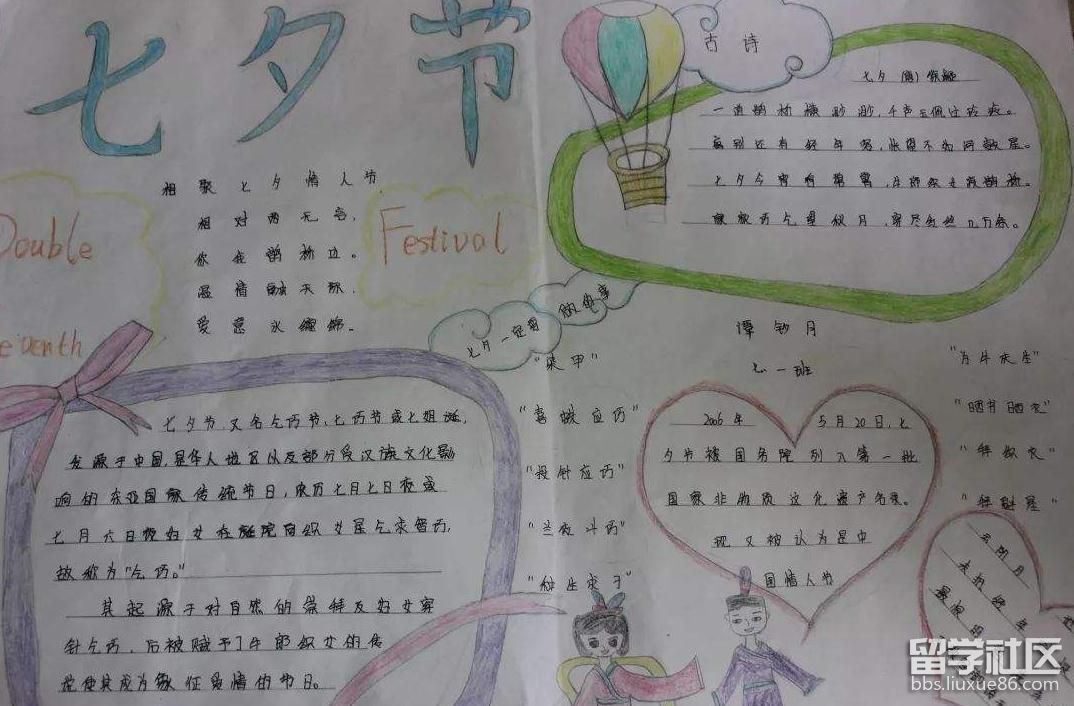 七夕节
相聚七夕情人节
相对两无言,
你我鹊桥边。
温情融天际,
爱意永缠绵。
Double
Seventh
Festival
古诗
一道鹊桥横渺渺,千声玉佩过玲玲。
离别还有经年客,怅望不如河鼓星。
七夕今宵看碧霄,牛郎织女渡鹊桥。
家家乞巧望秋月,穿尽红丝几万条。
七夕节又名乞巧节、七巧节或七姐诞,
发源于中国,是华人地区以及部分受汉族文化影
响的东亚国家传统节日,农历七月七日夜或
七月六日夜妇女在庭院向织女星乞求智巧,
故称为"乞巧。"
其起源于对自然的崇拜及妇女穿
针乞巧,后被赋予了牛郎织女的传
说使其成为象征爱情的节日。
七一班
"染甲"
"喜蛛应巧"
"投针应巧"
"兰夜斗巧"
"种生求子"
"为牛庆生"
"晒书晒衣"
"拜织女"
"拜魁星"
2006年 5月20日,七
夕节被国务院列入第一批
国家非物质文化遗产名录。
现又被认为是中
国情人节
留学社区
bbs.liuxue86.com